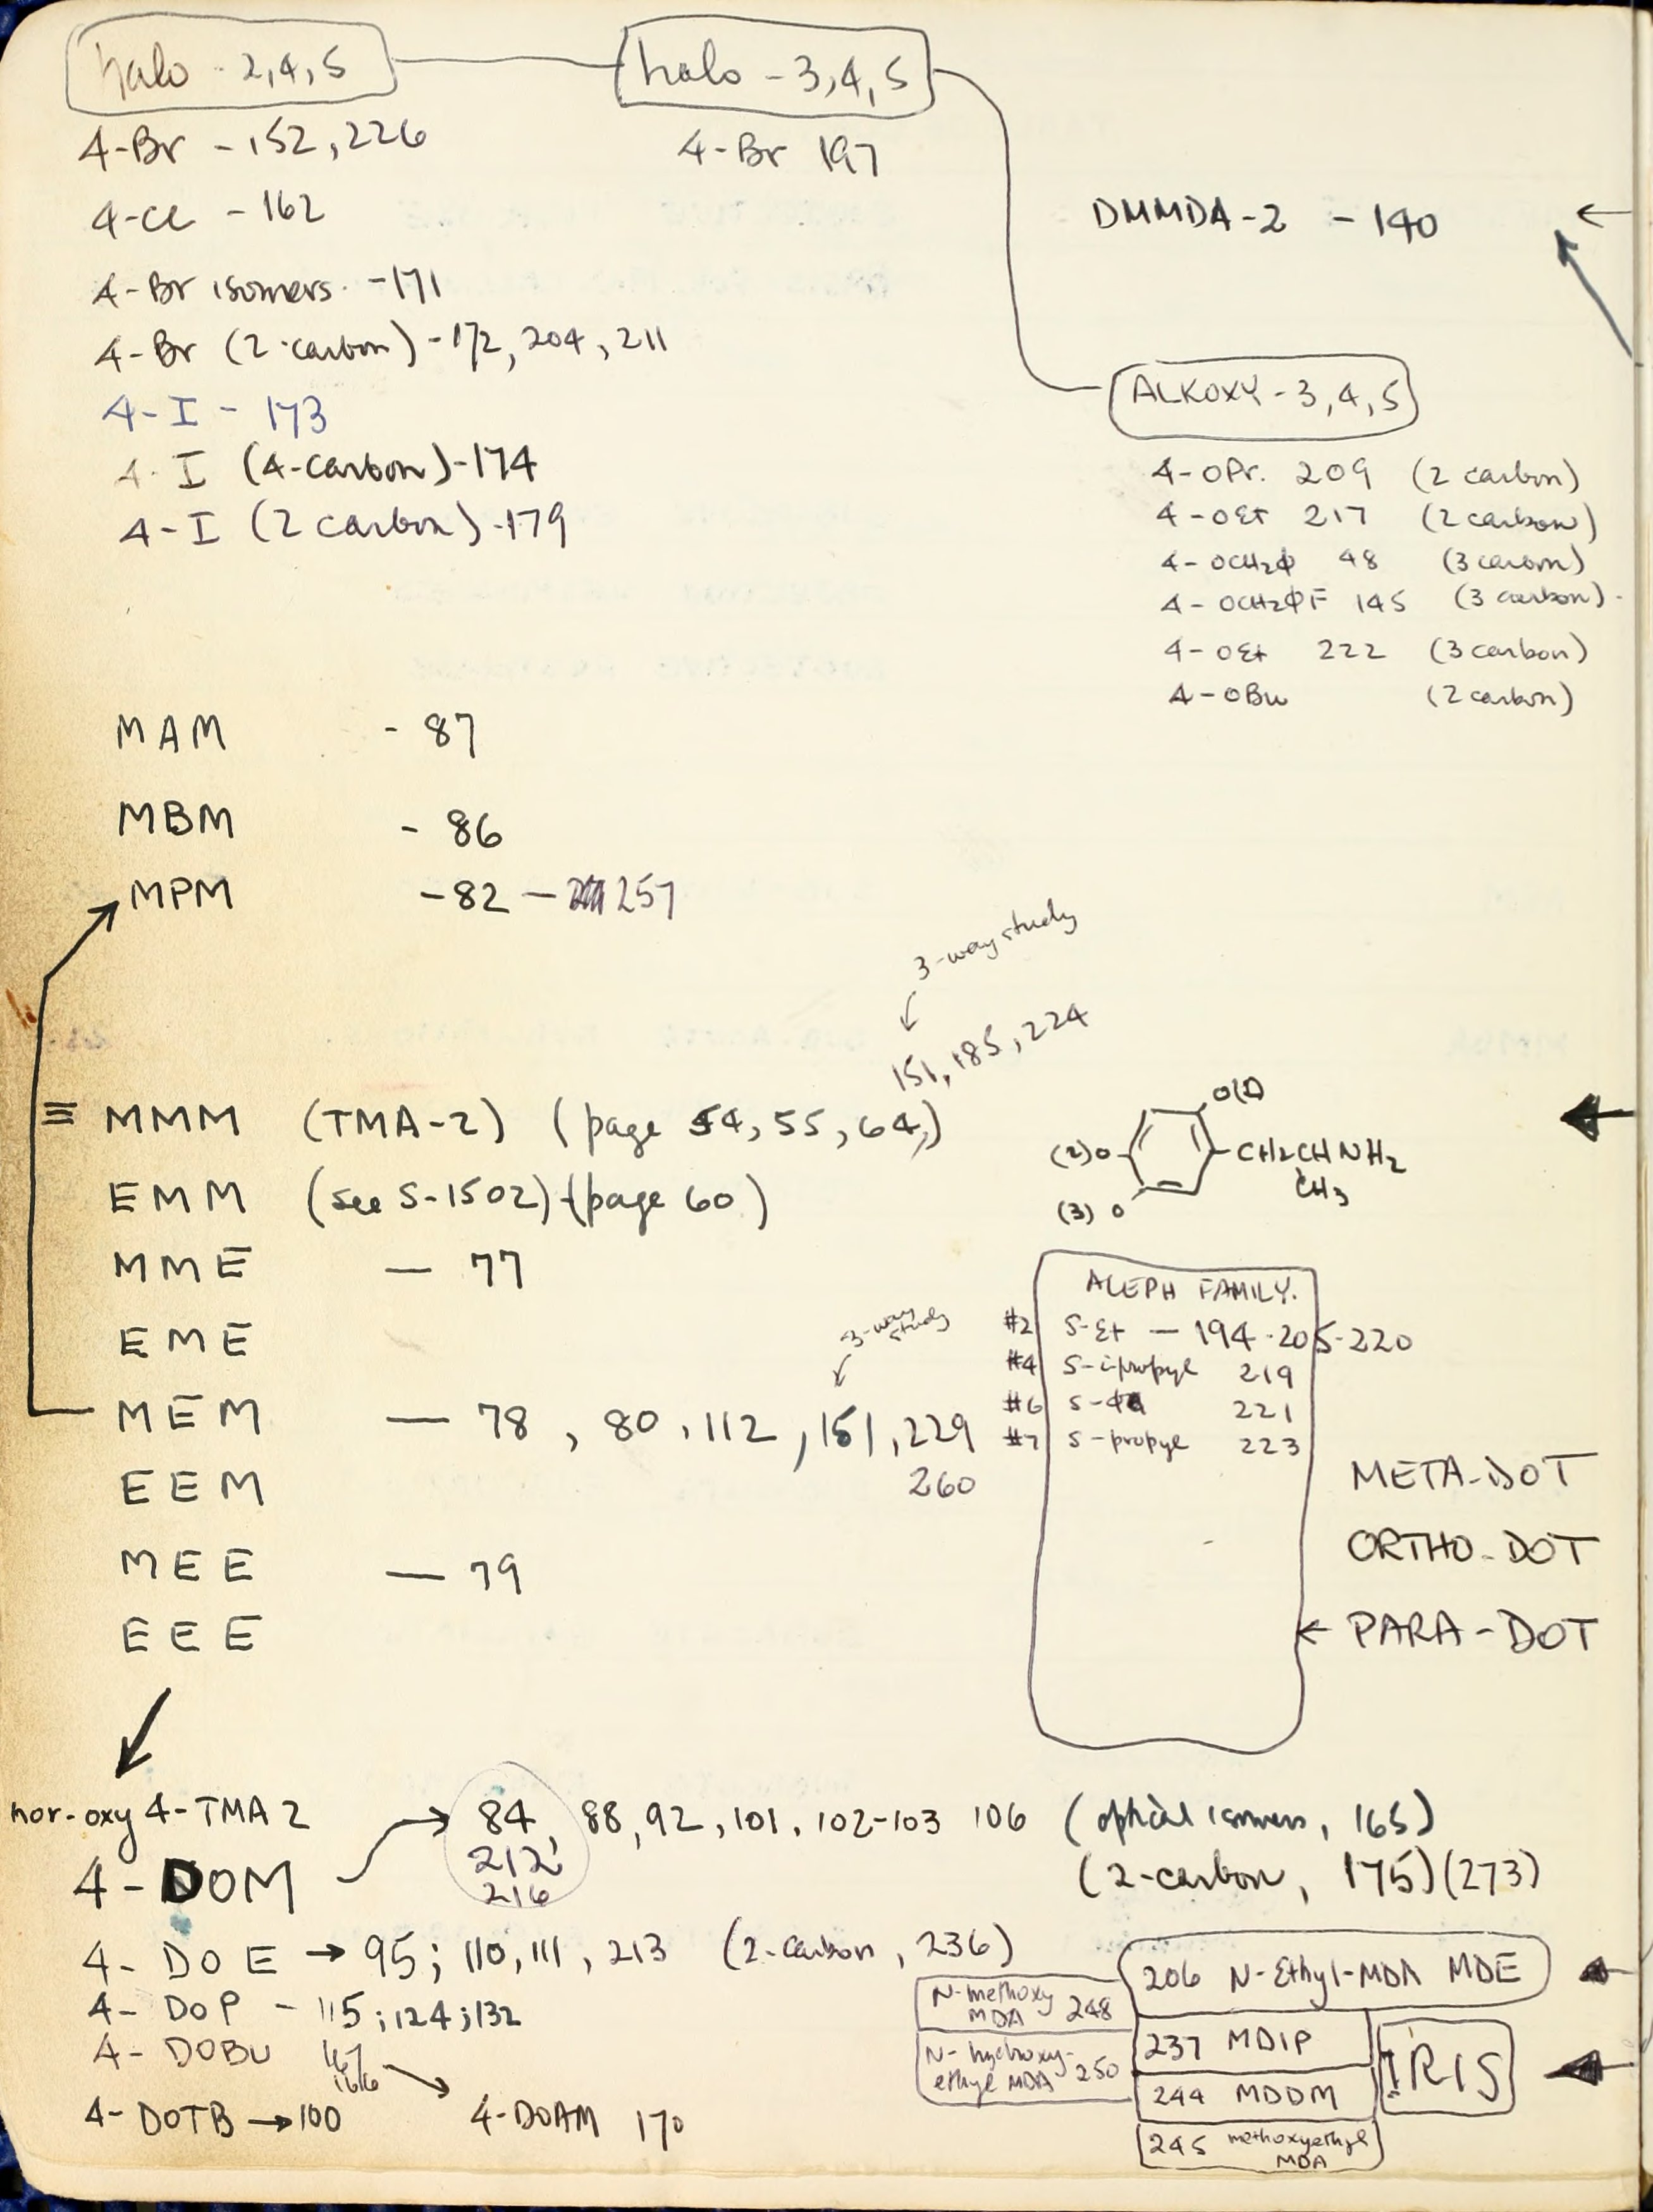 halo - 2,4,5
halo - 3,4,5
4-Br - 152, 226
4-Br 197
4-Cl - 162
DMMDA-2 - 140 ←
4-Br isomers. - 171
4-Br (2-carbon) - 172, 204, 211
ALKOXY - 3,4,5
4-I - 173
4-I (4-carbon) - 174
4-I (2 carbon) - 179
4-OPr. 209 (2 carbon)
4-OEt 217 (2 carbon)
4-OCH2Φ 48 (3 carbon)
4-OCH2ΦF 145 (3 carbon).
4-OEt 222 (3 carbon)
4-OBu (2 carbon)
MAM - 87
MBM - 86
MPM - 82 - 257
3-way study
151, 185, 224
≡ MMM (TMA-2) (page 54, 55, 64,)
O(1)
(2)O
CH2CHNH2
CH3
(3) O
EMM (see S-1502) - (page 60)
MME — 77
EME
3-way study
MEM — 78, 80, 112, 151, 229
260
EEM
MEE — 79
EEE
ALEPH FAMILY.
#2 S-Et — 194-205-220
#4 S-i-propyl 219
#6 S-Φ 221
#7 S-propyl 223
META-DOT
ORTHO-DOT
← PARA-DOT
nor-oxy 4-TMA 2
4-DOM → 84, 88, 92, 101, 102-103 106 (optical isomers, 165)
212,
216
(2-carbon, 175) (273)
4- DOE → 95; 110, 111, 213 (2-carbon, 236)
4- DOP - 115; 124; 132
4- DOBU 167
166
4- DOTB → 100
4-DOAM 170
206 N-Ethyl-MDA MDE
N-methoxy MDA 248
237 MDIP
N-hydroxy-ethyl MDA 250
244 MDDM
IRIS
245 methoxyethyl MDA